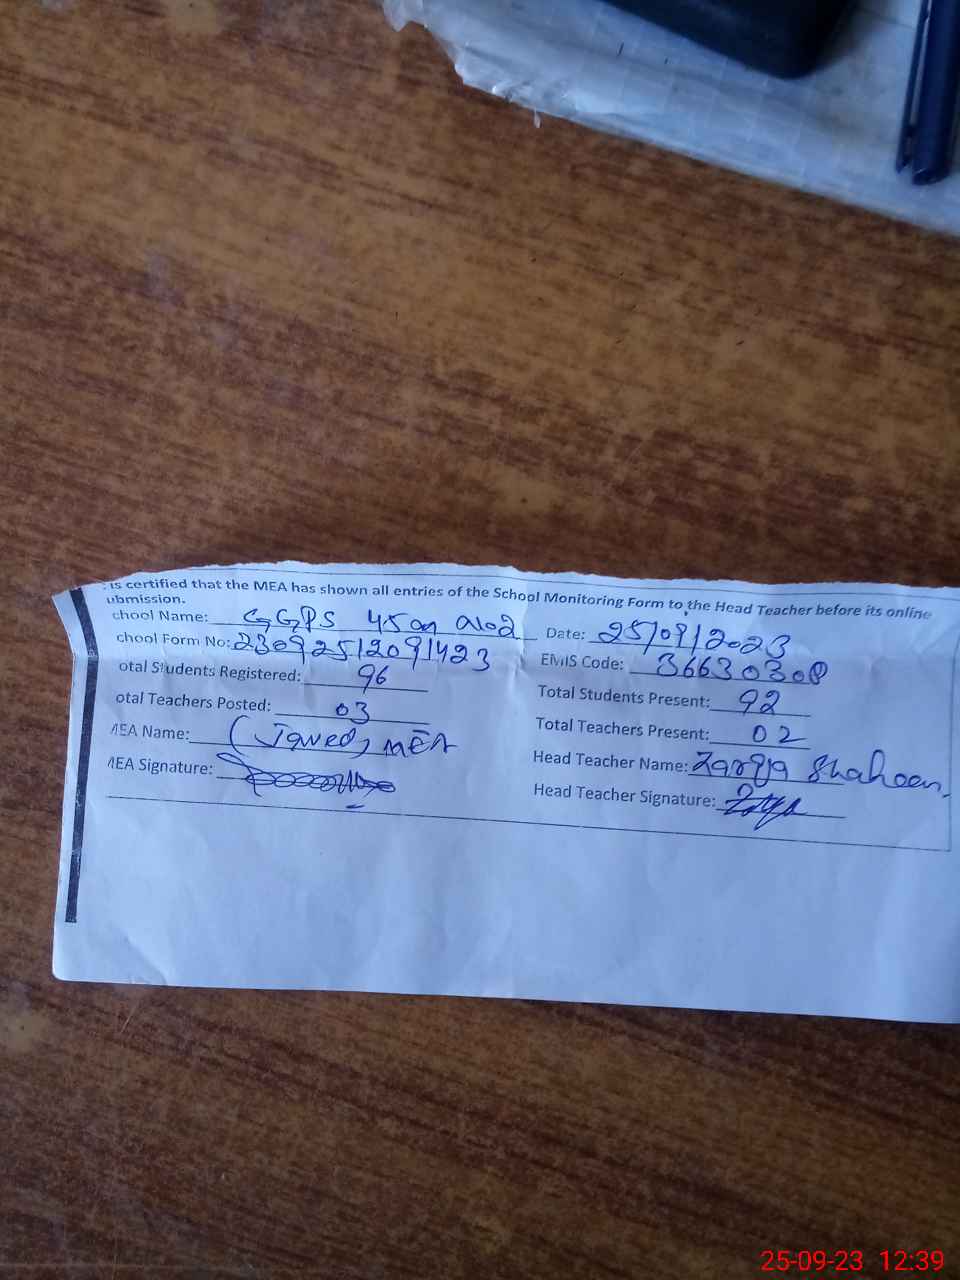 is certified that the MEA has shown all entries of the School Monitoring Form to the Head Teacher before its online
ubmission.
chool Name: GGPS 45
Date: 25/09/2023
chool Form No: 23092512091423
EMIS Code: 36630308
otal Students Registered: 96
Total Students Present: 92
otal Teachers Posted: 03
Total Teachers Present: 02
MEA Name: (Javed) MEA
Head Teacher Name: Shaheen
MEA Signature:
Head Teacher Signature:
25-09-23 12:39